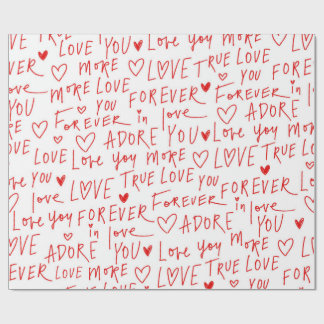 LOVE YOU Love you MORE LOVE TRUE LOVE
EVER LOVE MORE LOVE TRUE LOVE YOU FOREVER
YOU FOREVER in love ADORE YOU Love you MORE
LOVE Love you MORE LOVE TRUE LOVE YOU FOREVER
love you FOREVER FOREVER in love ADORE
LOVE ADORE YOU Love you MORE LOVE
EVER LOVE MORE LOVE TRUE LOVE YOU
YOU FOREVER in love ADORE FOREVER